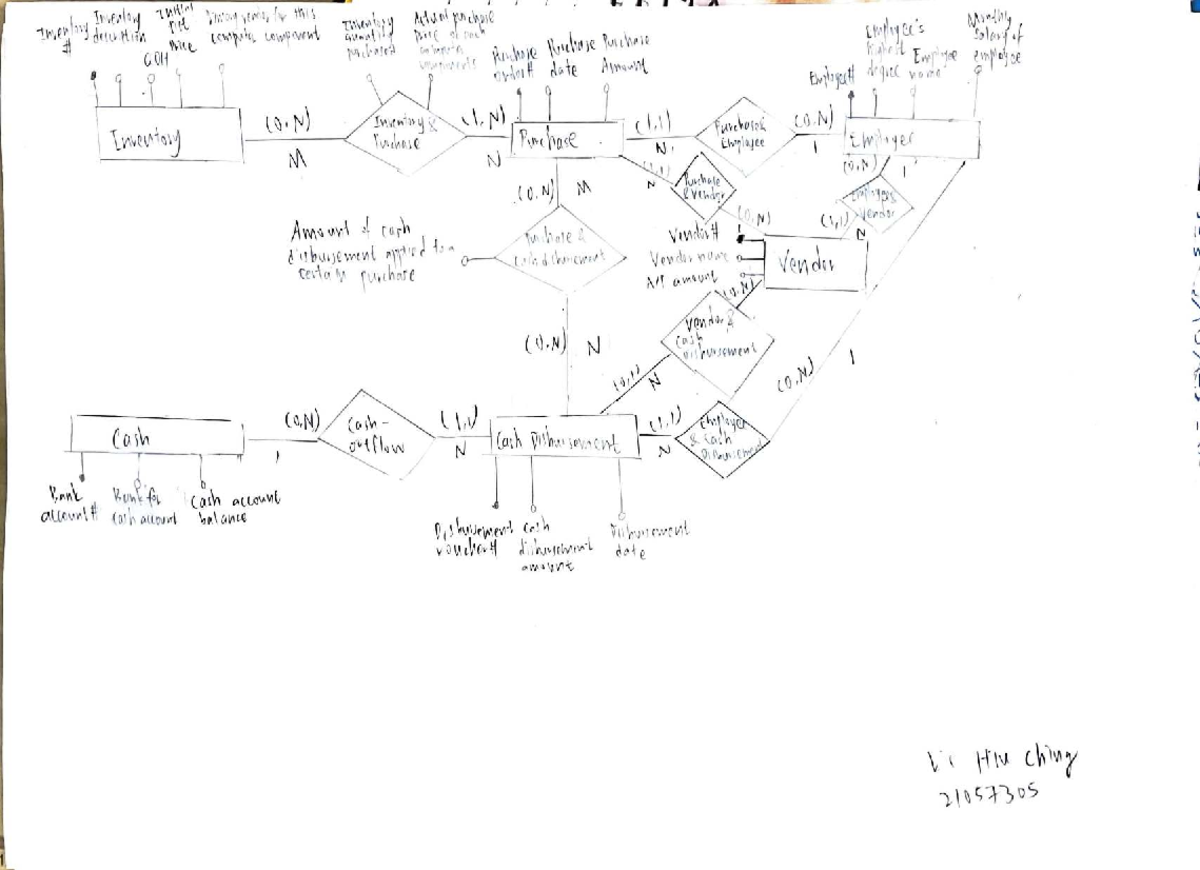 Inventory
#
Inventory
description
QOH
Initial
price
vendor for this
computer component
Inventory
quantity
purchased
Actual purchase
price of each
computer
components
Purchase
order#
Purchase
date
Purchase
Amount
Employee#
Employee's
highest
degree
Employee
name
Monthly
salary of
employee
Inventory
(0,N)
M
Inventory &
Purchase
(1,N)
N
Purchase
(1,1)
N
Purchase &
Employee
(0,N)
1
Employee
(1,1)
N
Purchase
& vendor
(0,N)
1
(0,N)
1
Employee &
Vendor
(1,1)
N
(0,N)
M
Amount of cash
disbursement applied to a
certain purchase
Purchase &
Cash disbursement
Vendor#
Vendor name
A/P amount
Vendor
(0,N)
Vendor &
Cash
Disbursement
(0,N)
N
(1,1)
N
(0,N)
1
Cash
(0,N)
1
Cash-
outflow
(1,1)
N
Cash Disbursement
(1,1)
N
Employee
& Cash
Disbursement
Bank
account#
Bank for
cash account
Cash account
balance
Disbursement
voucher#
Cash
disbursement
amount
Disbursement
date
Hiu Ching
21057305